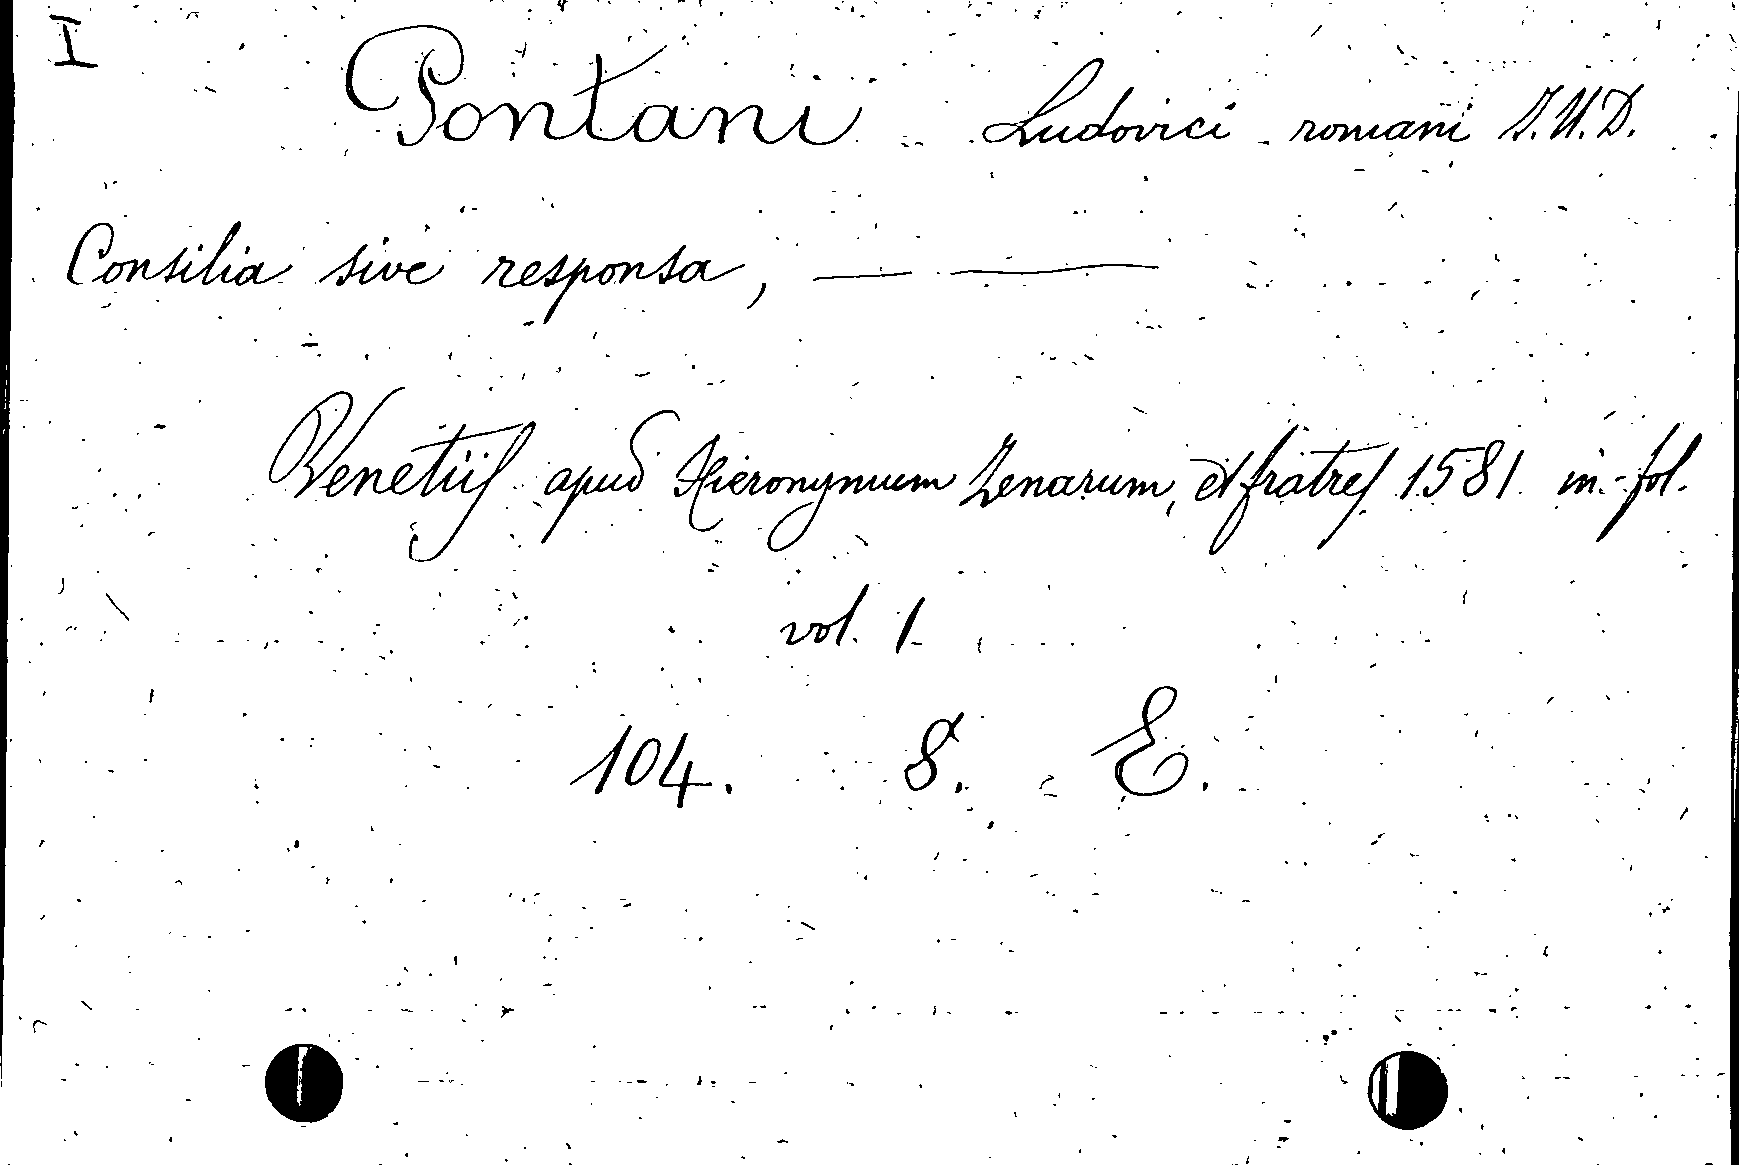 I
Pontani Ludovici romani J.U.D.
Consilia sive responsa, — —
Venetiis apud Hieronymum Zenarum, et fratres 1581 in-fol.
vol. 1
104. 8. E.